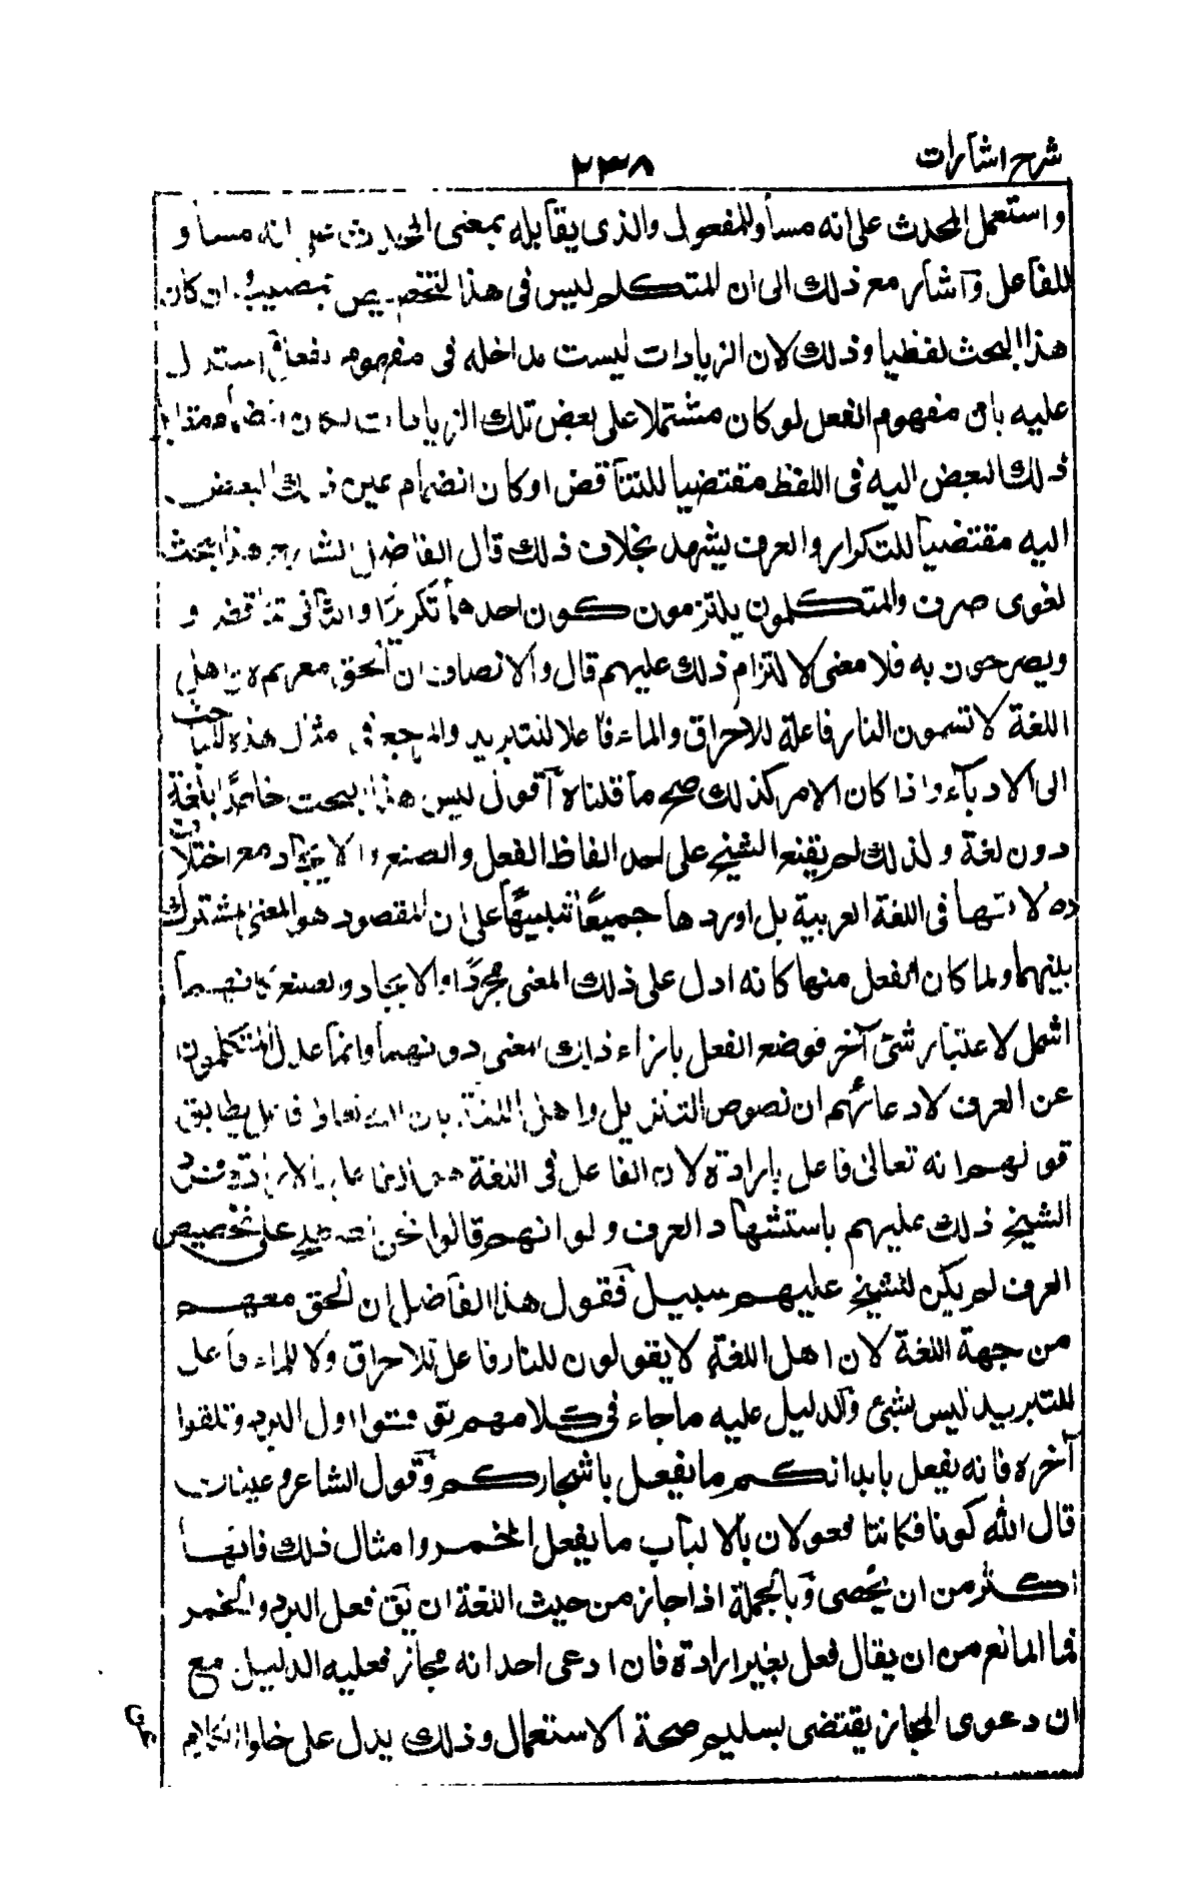 شرح اشارات
۲۳۸
واستعمل المحدث على انه مساو للمفعول والذى يقابله بمعنى المحدث على انه مساو
للفاعل وآشار مع ذلك الى ان المتكلم ليس فى هذا التخصيص بمصيب وان كان
هذا البحث لفظيا وذلك لان الزيادات ليست بداخله فى مفهوم الفعل واستدل
عليه بان مفهوم الفعل لو كان مشتملا على بعض تلك الزيادات لكان انضمام مقابل
ذلك البعض اليه فى اللفظ مقتضيا للتناقض او كان انضمام عين ذلك البعض
اليه مقتضيا للتكرار والعرف يشهد بخلاف ذلك قال الفاضل الشارح هذا بحث
لغوى صرف والمتكلمون يلتزمون كون احدهما تكريرا والثانى تناقضا و
ويصرحون به فلا معنى لالتزام ذلك عليهم قال والانصاف ان الحق معهم لان اهل
اللغة لا تسمون النار فاعلة للاحراق والماء فاعلا للتبريد والمرجع فى مثل هذه المباحث
الى الادباء واذا كان الامر كذلك صح ما قلناه آقول ليس هذا البحث خاصا بلغة
دون لغة ولذلك لم يقنع الشيخ على احد الفاظ الفعل والصنع والايجاد مع اختلاف
دلالاتها فى اللغة العربية بل اوردها جميعًا تنبيهًا على ان المقصود هو المعنى المشترك
بينهما ولما كان الفعل منها كانه ادل على ذلك المعنى مجردًا والايجاد والصنع كانهما
اشمل لاعتبار شئ آخر فوضع الفعل بازاء ذلك المعنى دونهما وانما عدل المتكلمون
عن العرف لادعائهم ان نصوص التنزيل واهل اللغة بان الله تعالى فاعل يطابق
قولهم انه تعالى فاعل بارادة لان الفاعل فى اللغة هو الفاعل بالارادة فرد
الشيخ ذلك عليهم باستشهاد العرف ولو انهم قالوا نحن نصطلح على تخصيص
العرف لم يكن للشيخ عليهم سبيل فقول هذا الفاضل ان الحق معهم
من جهة اللغة لان اهل اللغة لا يقولون للنار فاعل للاحراق ولا للماء فاعل
للتبريد ليس بشئ والدليل عليه ماجاء فى كلامهم تق فتوا اول البرد وتلقوا
آخره فانه يفعل بابدانكم ما يفعل باشجاركم وقول الشاعر وعينان
قال الله كونا فكانتا فعولان بالالباب ما يفعل الخمر وامثال ذلك فانها
اكثر من ان يحصى وبالجملة اذا جاز من حيث اللغة ان يق فعل البرد والخمر
فما المانع من ان يقال فعل بغير ارادة فان ادعى احد انه مجاز فعليه الدليل مع
ان دعوى المجاز يقتضى بسليم صحة الاستعمال وذلك يدل على خلو الكلام